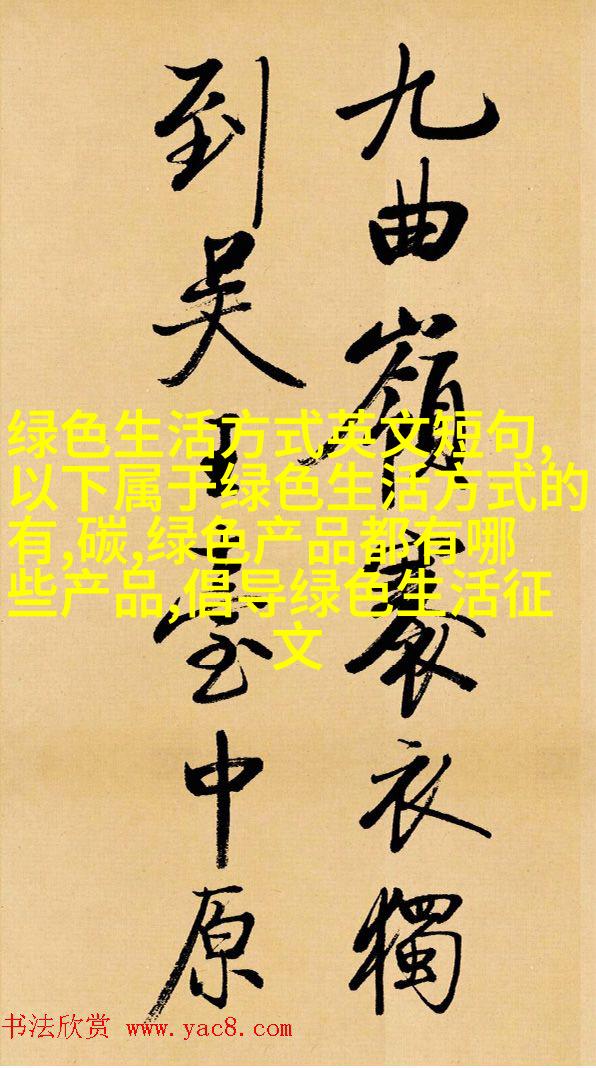 九曲嶺褰衣獨
到吴王臺中原
绿色生活方式英文短句,
以下属于绿色生活方式的
有,碳,绿色产品都有哪
些产品,倡导绿色生活征
文
书法欣赏 www.yac8.com